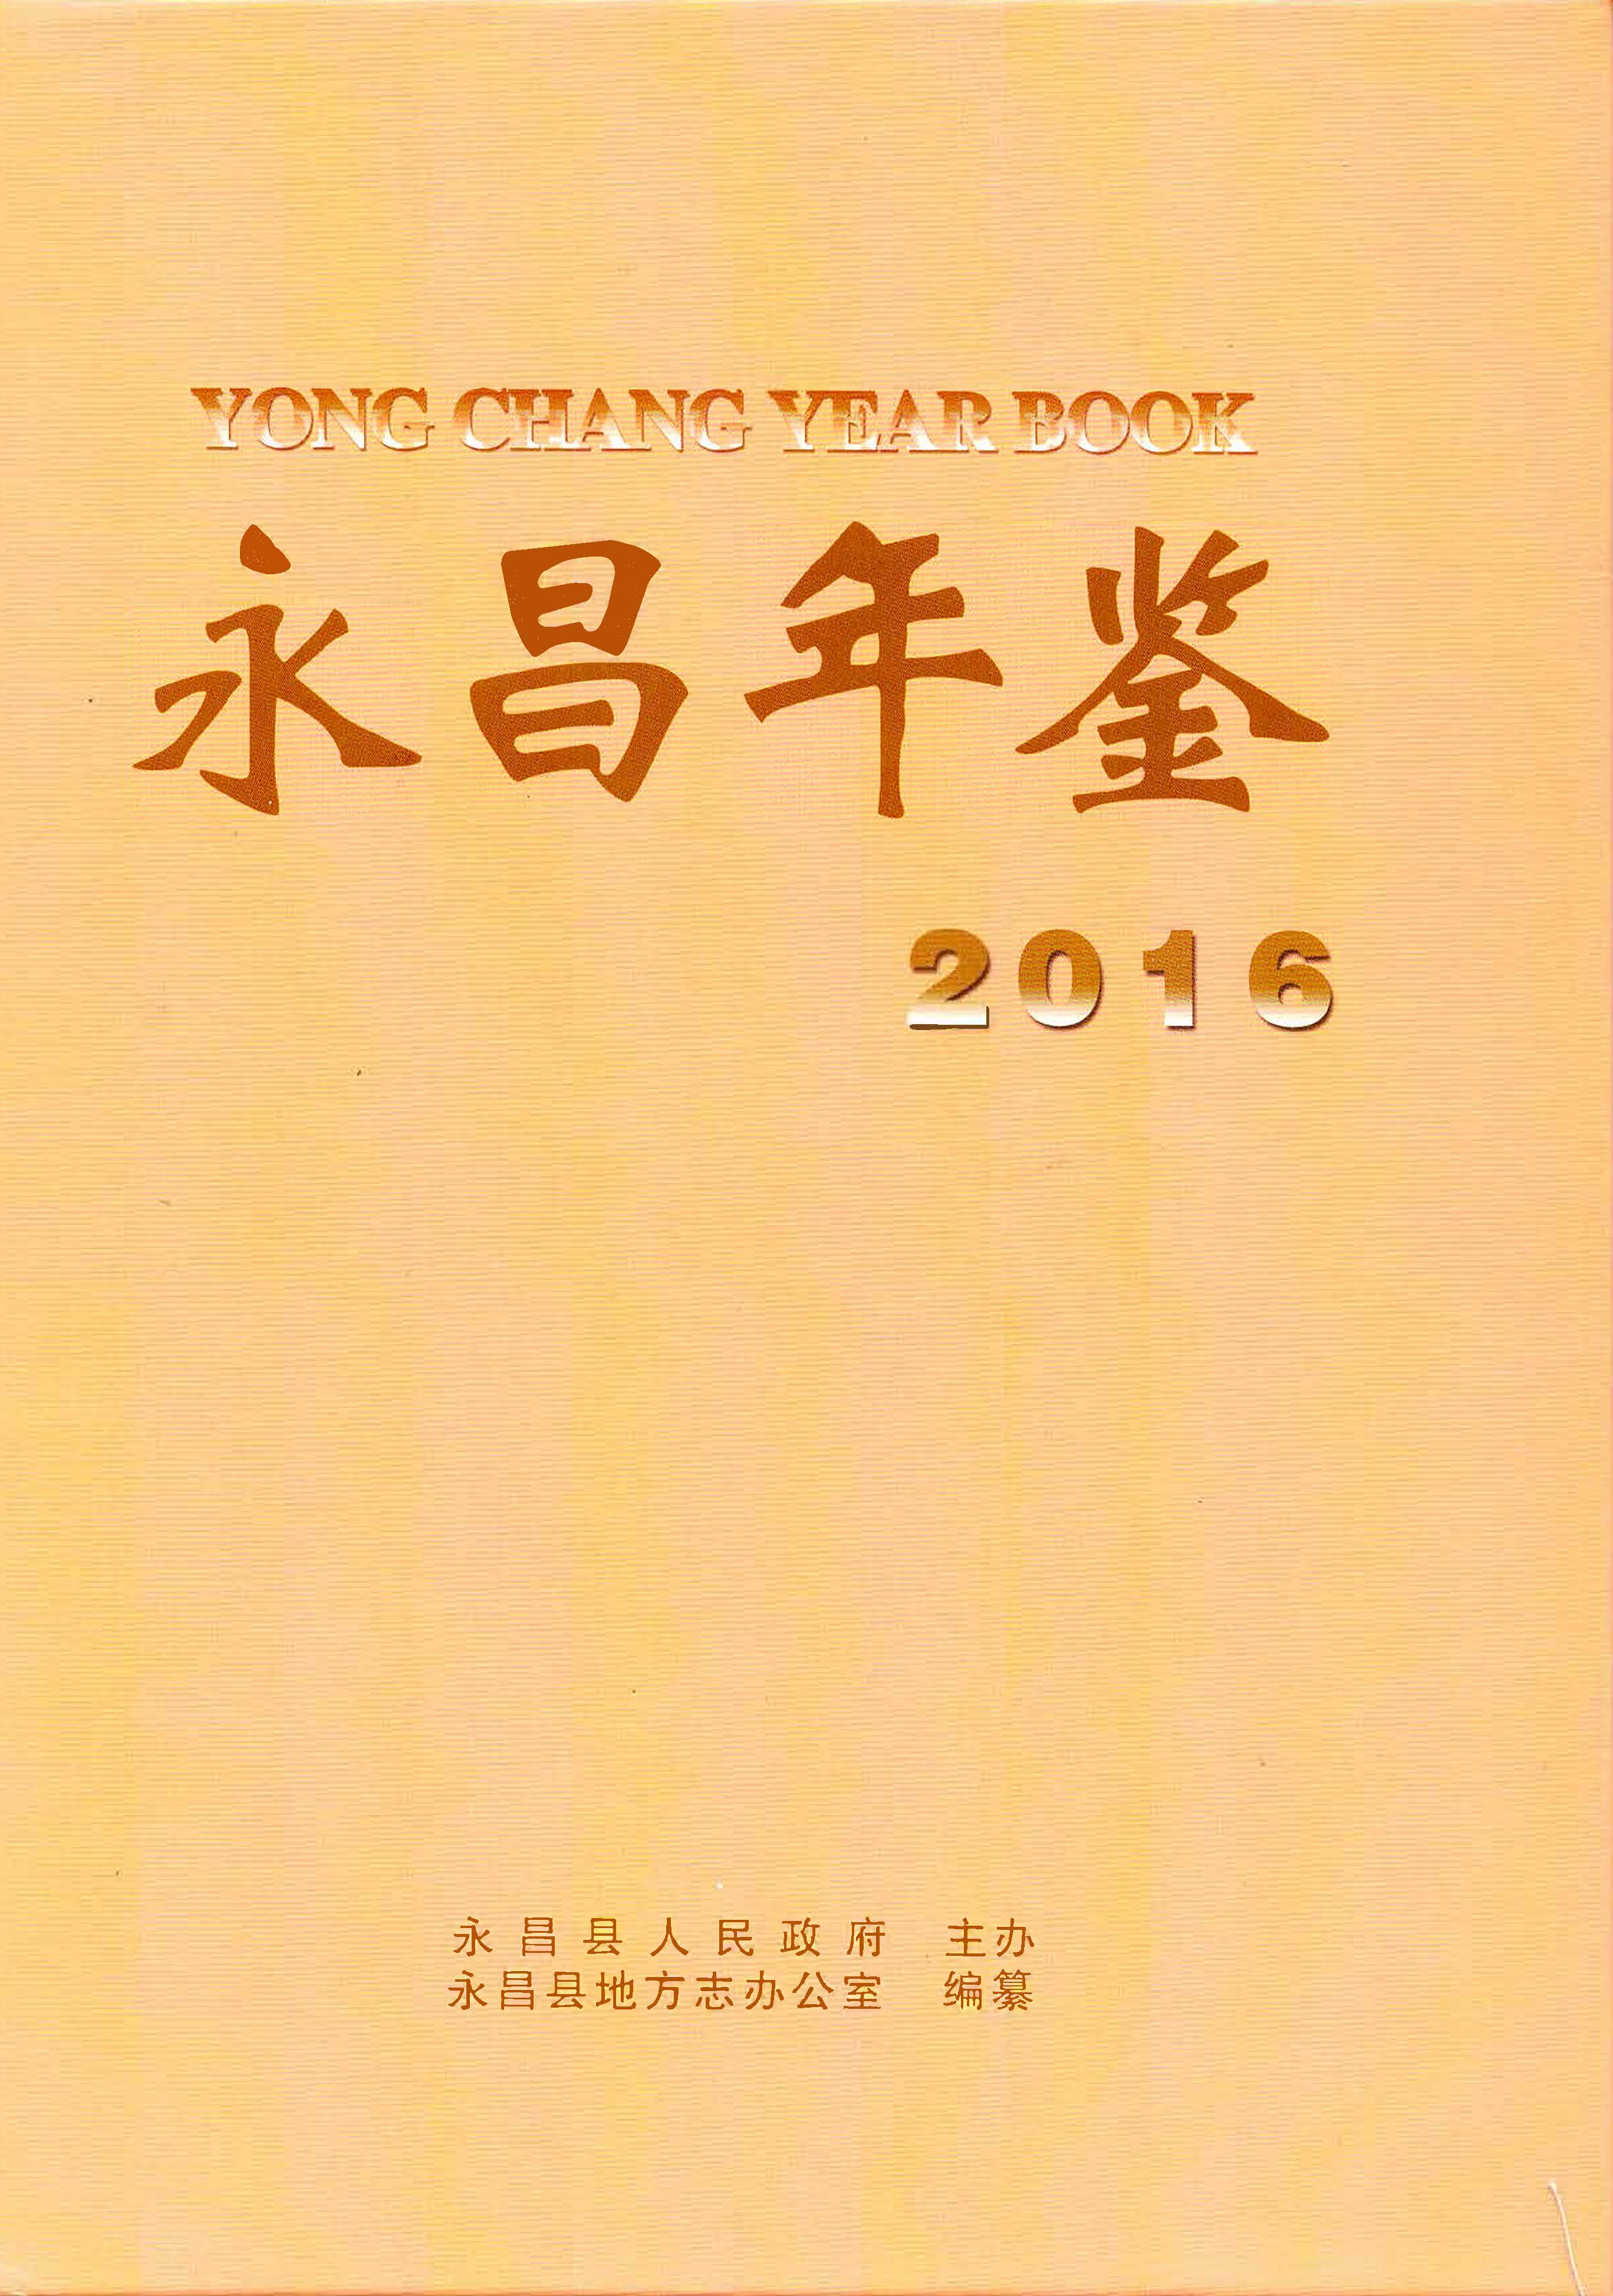 YONG CHANG YEAR BOOK
永昌年鉴
2016
永昌县人民政府 主办
永昌县地方志办公室 编纂